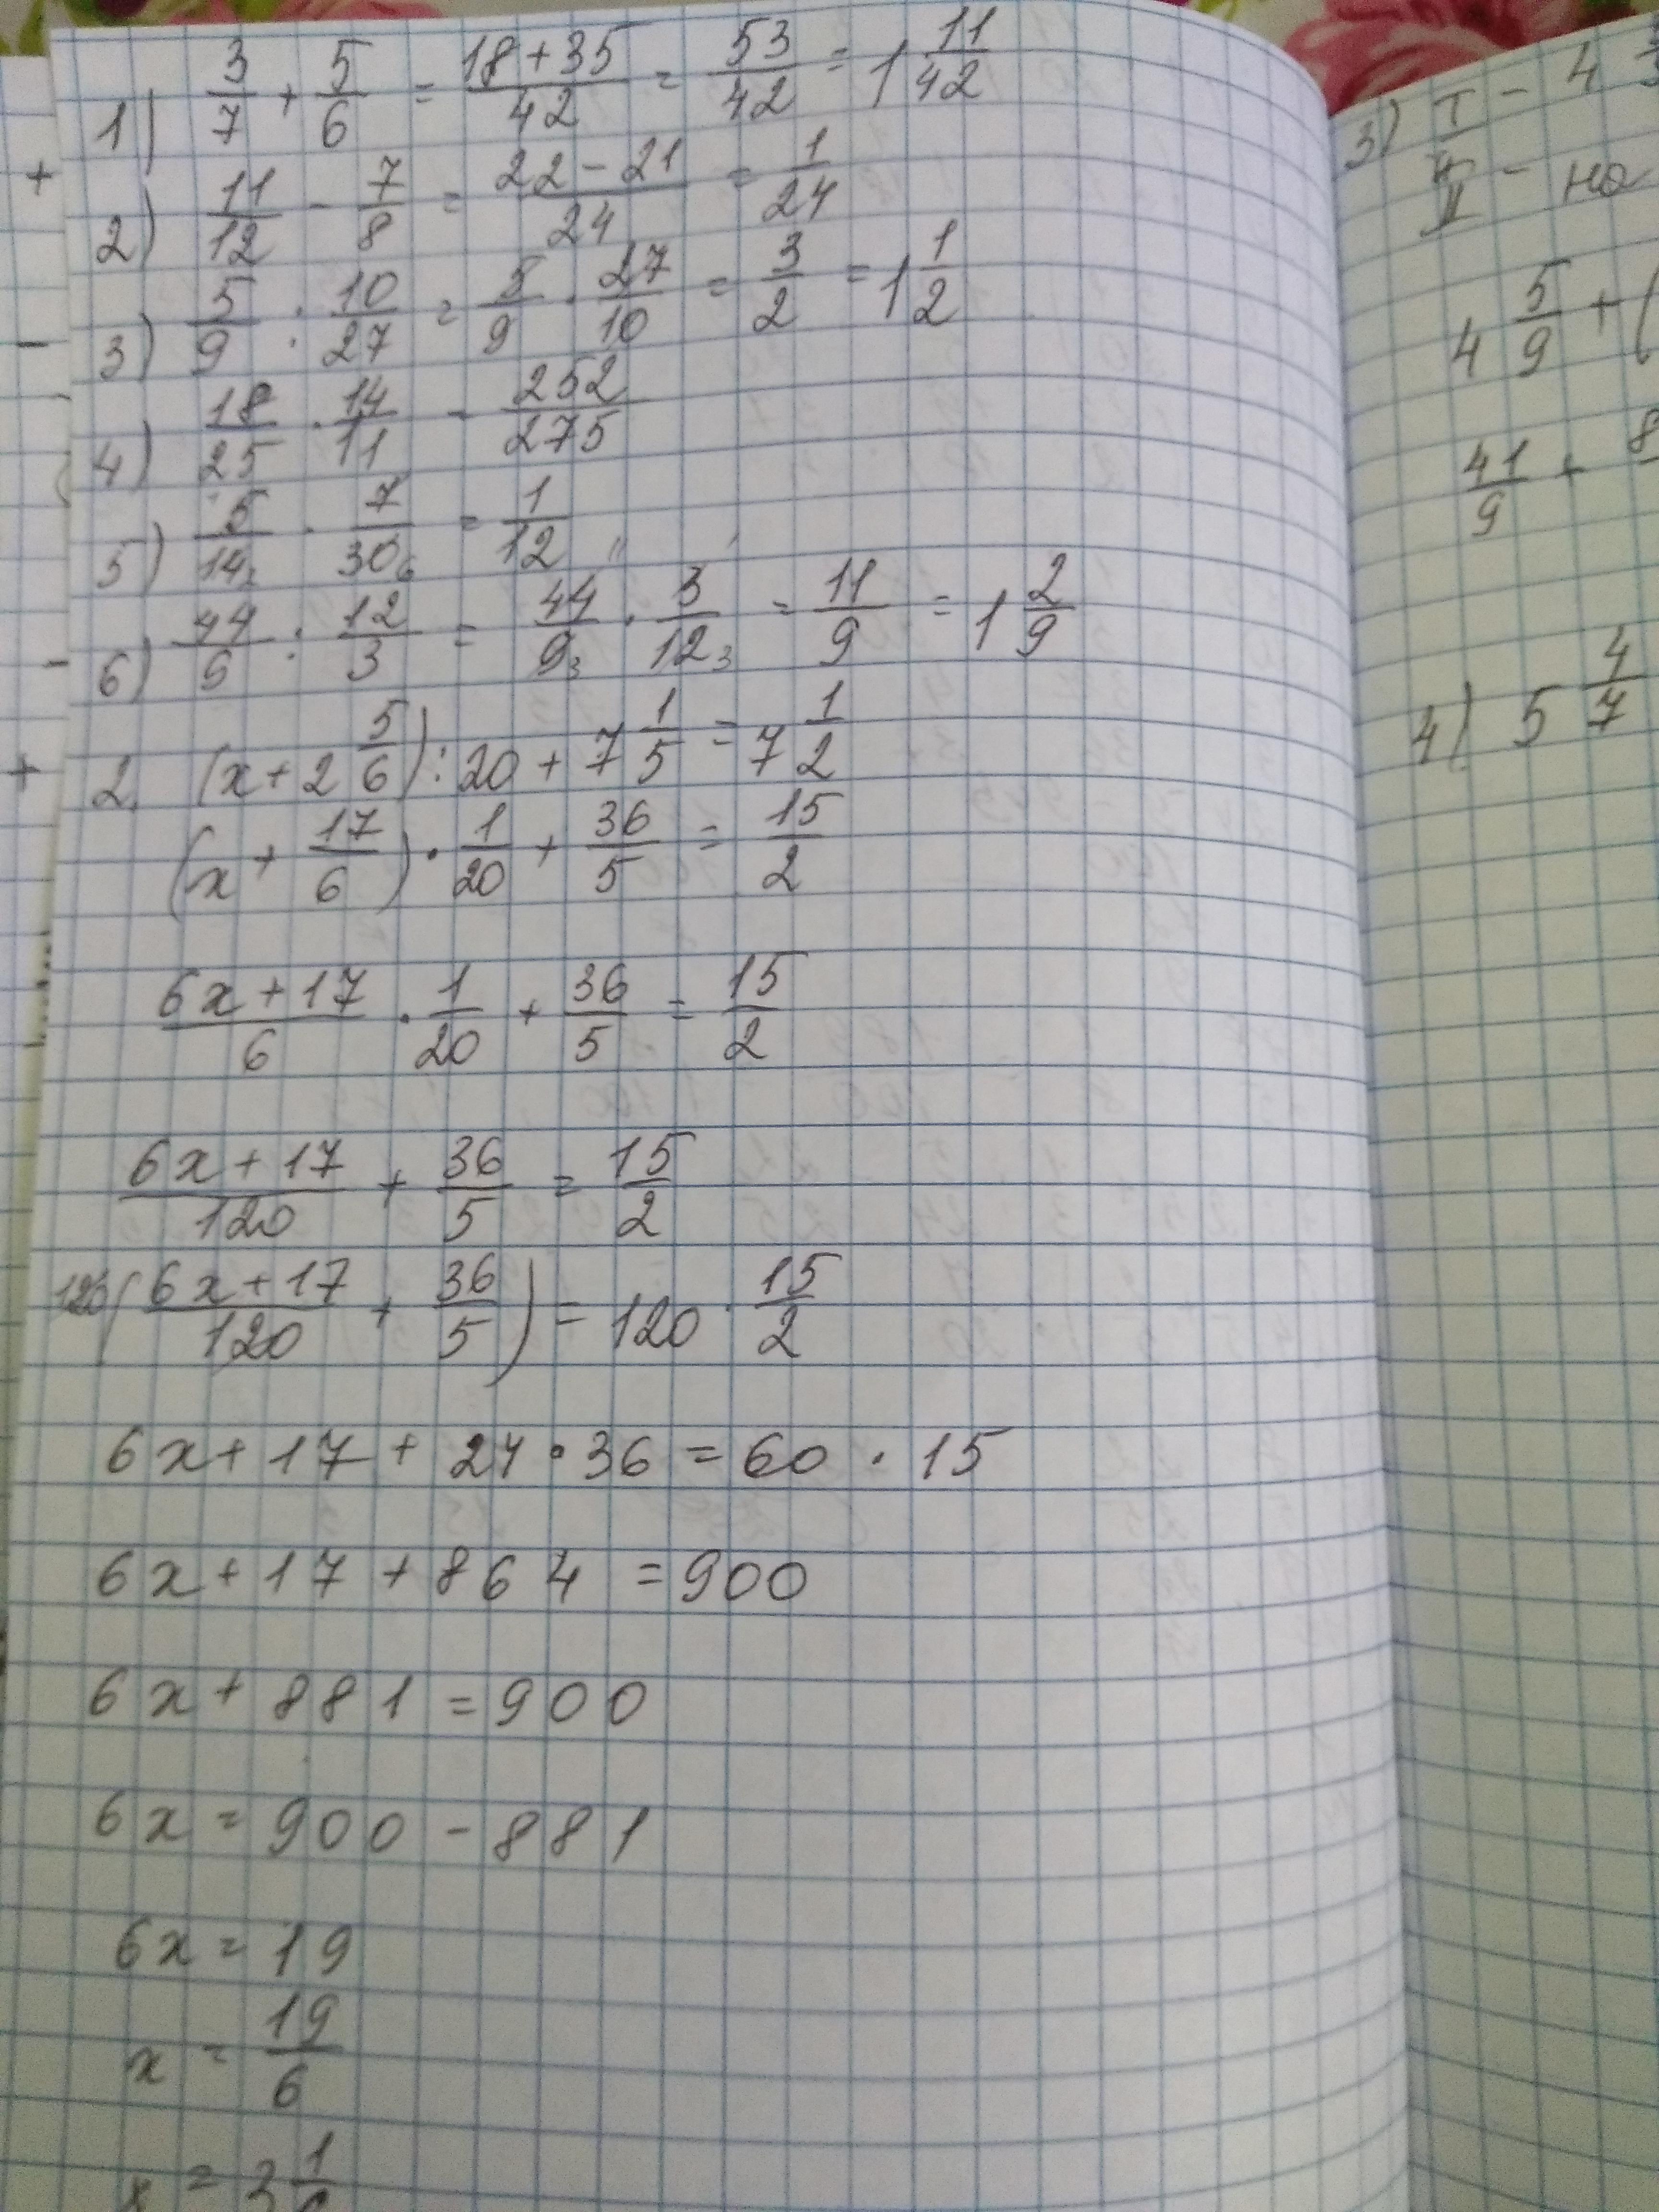 1) 3/7 + 5/6 = (18+35)/42 = 53/42 = 1 11/42
2) 11/12 - 7/8 = (22-21)/24 = 1/24
3) 5/9 : 10/27 = 5/9 · 27/10 = 3/2 = 1 1/2
4) 18/25 · 14/11 - 252/275
5) 5/14 · 7/30 6 = 1/12
6) 44/9 : 12/3 = 44/9 3 · 3/12 3 = 11/9 = 1 2/9
2. (x + 2 5/6) : 20 + 7 1/5 = 7 1/2
(x + 17/6) · 1/20 + 36/5 = 15/2
(6x+17)/6 · 1/20 + 36/5 = 15/2
(6x+17)/120 + 36/5 = 15/2
120((6x+17)/120 + 36/5) = 120 · 15/2
6x + 17 + 24 · 36 = 60 · 15
6x + 17 + 864 = 900
6x + 881 = 900
6x = 900 - 881
6x = 19
x = 19/6
3) I - 4
II - на
4 5/9 + (
41/9 + 8
4) 5 4/7